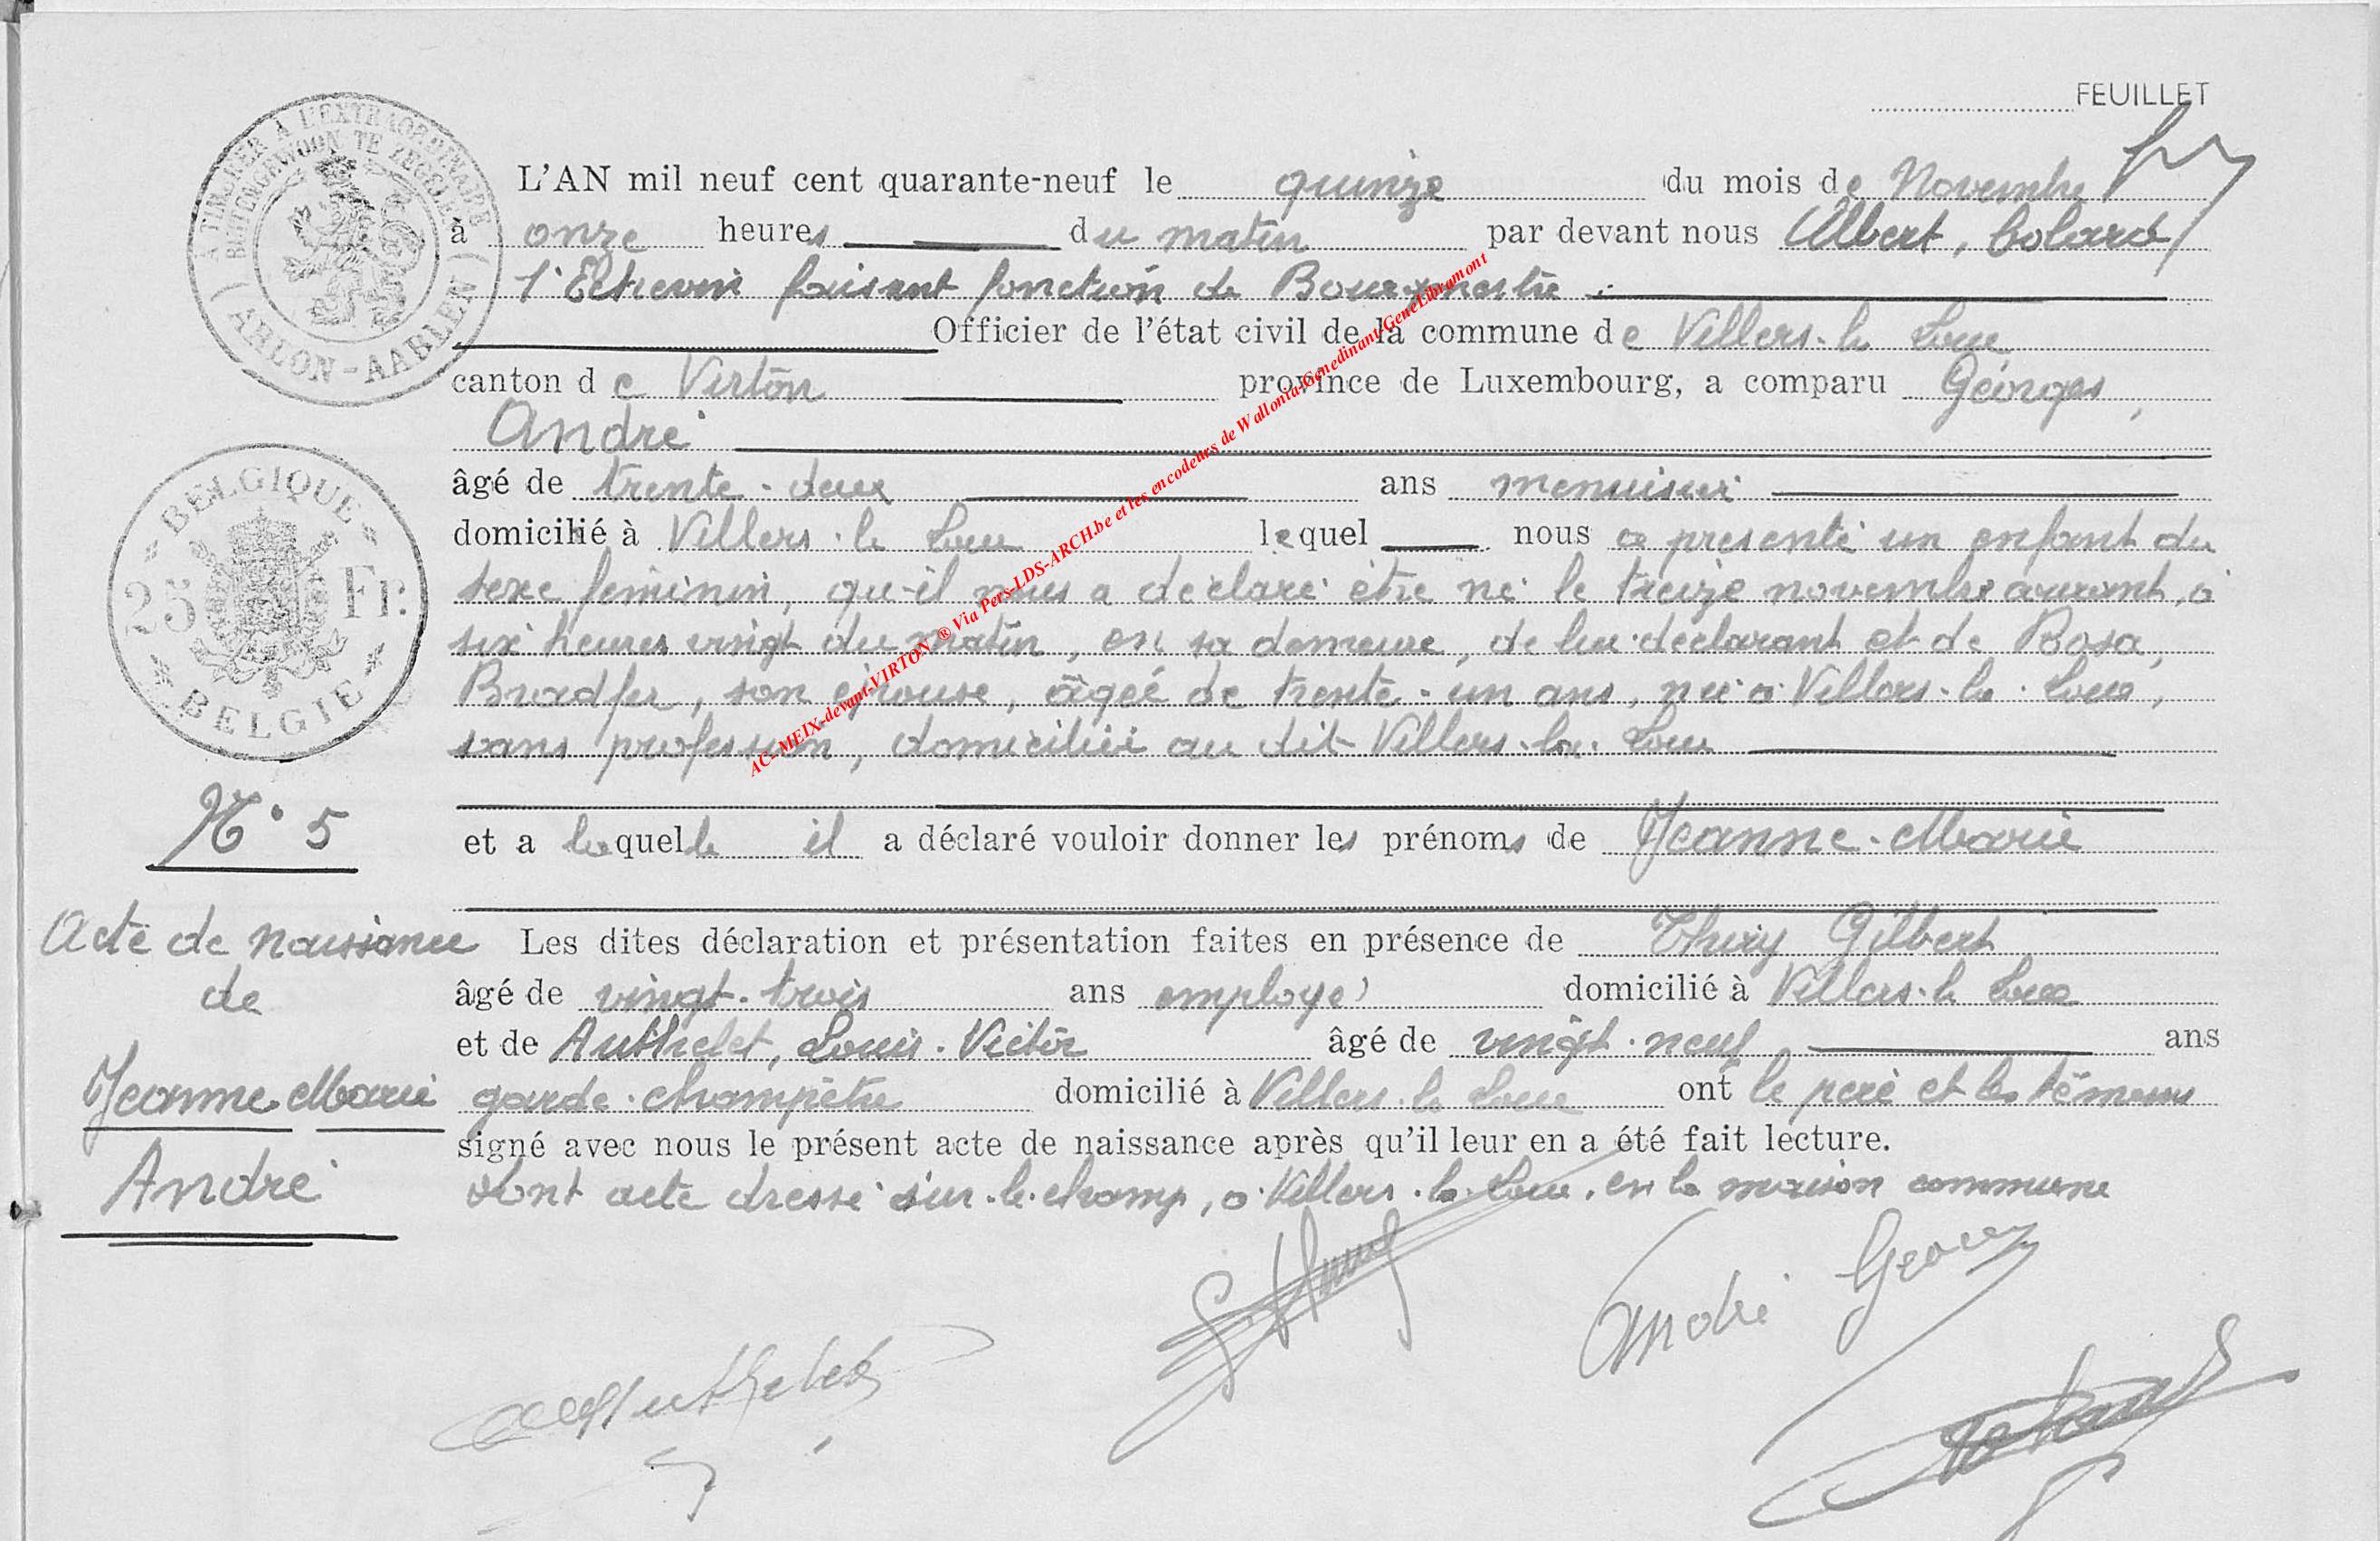 FEUILLET
A TIMBRER A L'EXTRAORDINAIRE
BUITENGEWOON TE ZEGELEN
ARLON - AARLEN
L'AN mil neuf cent quarante-neuf le quinze du mois de Novembre
à onze heures du matin par devant nous Albert, Colard
l'Echevin faisant fonction de Bourgmestre.
Officier de l'état civil de la commune de Villers-la-Loue
canton de Virton province de Luxembourg, a comparu Georges,
André
âgé de trente-deux ans menuisier
domicilié à Villers-la-Loue lequel nous a présenté un enfant du
sexe féminin, qu'il nous a déclaré être né le treize novembre courant, à
six heures vingt du matin, en sa demeure, de lui déclarant et de Rosa,
Bradfer, son épouse, âgée de trente-un ans, née à Villers-la-Loue,
sans profession, domiciliée au dit Villers-la-Loue
BELGIQUE
25 Fr.
BELGIE
N° 5
et a laquelle il a déclaré vouloir donner les prénoms de Jeanne-Marie
Acte de naissance
de
Jeanne-Marie
André
Les dites déclaration et présentation faites en présence de Thiry Gilbert
âgé de vingt-trois ans employé domicilié à Villers-la-Loue
et de Authelet, Louis-Victor âgé de vingt-neuf ans
garde-champêtre domicilié à Villers-la-Loue ont le père et les témoins
signé avec nous le présent acte de naissance après qu'il leur en a été fait lecture.
Dont acte dressé sur-le-champ, à Villers-la-Loue, en la maison commune
André Georges
Authelet
AC-MEIX-devant-VIRTON ® Via Pers-LDS-ARCH.be et les encodeurs de Wallonia-Genedinant-GeneLibramont